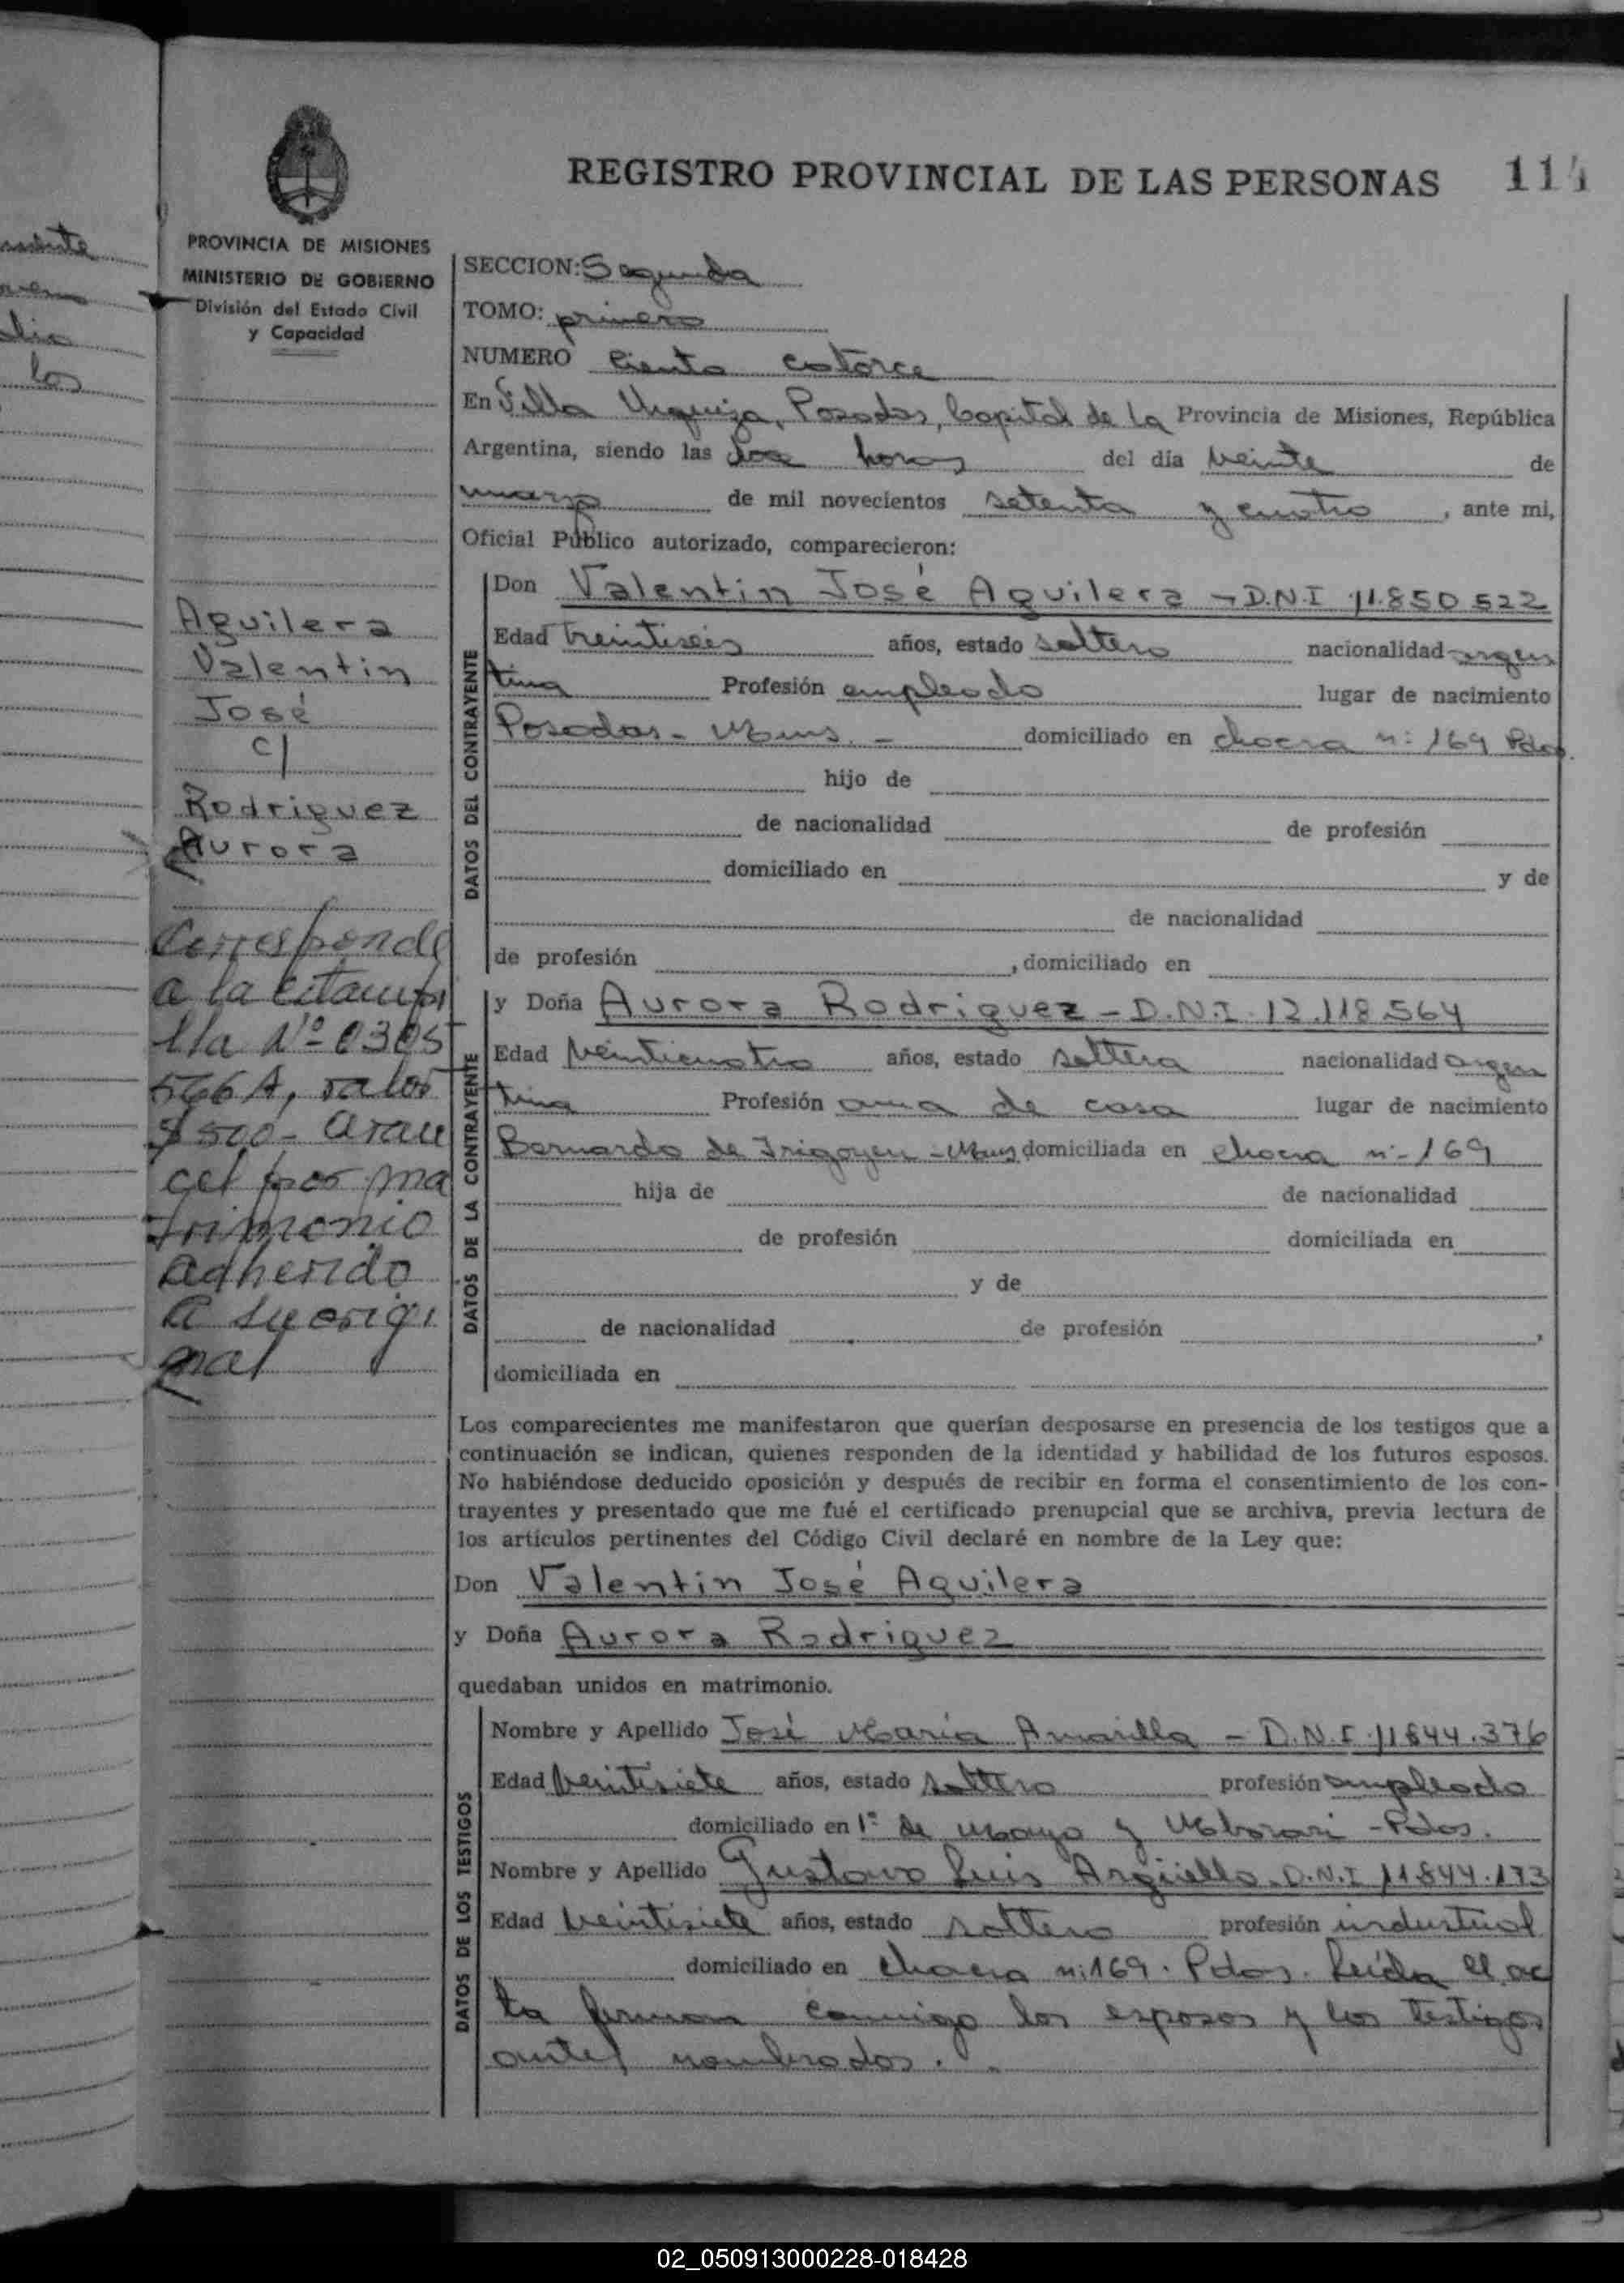 REGISTRO PROVINCIAL DE LAS PERSONAS 114
PROVINCIA DE MISIONES
MINISTERIO DE GOBIERNO
División del Estado Civil
y Capacidad
Aguilera
Valentin
José
c/
Rodriguez
Aurora
Corresponde
a la Estampi
lla Nº 0305
566 A, valor
$ 500- aran
cel por ma
trimonio
adherido
a su origi
nal
SECCION: Segunda
TOMO: primero
NUMERO Ciento catorce
En Villa Urquiza, Posadas, Capital de la Provincia de Misiones, República
Argentina, siendo las doce horas del día veinte de
marzo de mil novecientos setenta y cuatro, ante mi,
Oficial Público autorizado, comparecieron:
DATOS DEL CONTRAYENTE
Don Valentin José Aguilera - D.N.I 11.850.522
Edad treintiseis años, estado soltero nacionalidad argen
tina Profesión empleado lugar de nacimiento
Posadas - Mnes. - domiciliado en chacra n: 169 Pdas.
hijo de
de nacionalidad de profesión
domiciliado en y de
de nacionalidad
de profesión , domiciliado en
DATOS DE LA CONTRAYENTE
y Doña Aurora Rodriguez - D.N.I. 12.118.564
Edad veinticuatro años, estado soltera nacionalidad argen
tina Profesión ama de casa lugar de nacimiento
Bernardo de Irigoyen - Mnes domiciliada en chacra n:- 169
hija de de nacionalidad
de profesión domiciliada en
y de
de nacionalidad de profesión ,
domiciliada en
Los comparecientes me manifestaron que querían desposarse en presencia de los testigos que a
continuación se indican, quienes responden de la identidad y habilidad de los futuros esposos.
No habiéndose deducido oposición y después de recibir en forma el consentimiento de los con-
trayentes y presentado que me fué el certificado prenupcial que se archiva, previa lectura de
los artículos pertinentes del Código Civil declaré en nombre de la Ley que:
Don Valentin José Aguilera
y Doña Aurora Rodriguez
quedaban unidos en matrimonio.
DATOS DE LOS TESTIGOS
Nombre y Apellido José María Amarilla - D.N.I. 11844.376
Edad veintisiete años, estado soltero profesión empleado
domiciliado en 1º de Mayo y Mborari - Pdas.
Nombre y Apellido Gustavo Luis Argüello - D.N.I 11.844.173
Edad veintisiete años, estado soltero profesión industrial
domiciliado en chacra n: 169. Pdas. Leída el ac
ta firman conmigo los esposos y los testigos
antes nombrados.
02_050913000228-018428